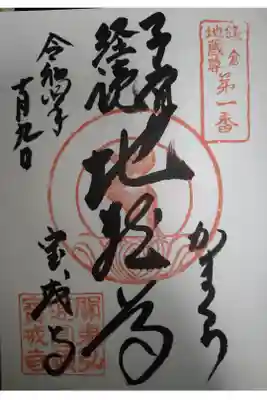 鎌倉
地蔵尊
第一番
かまくら
子育
経読
地蔵尊
宝戒寺
令和四年
十月九日